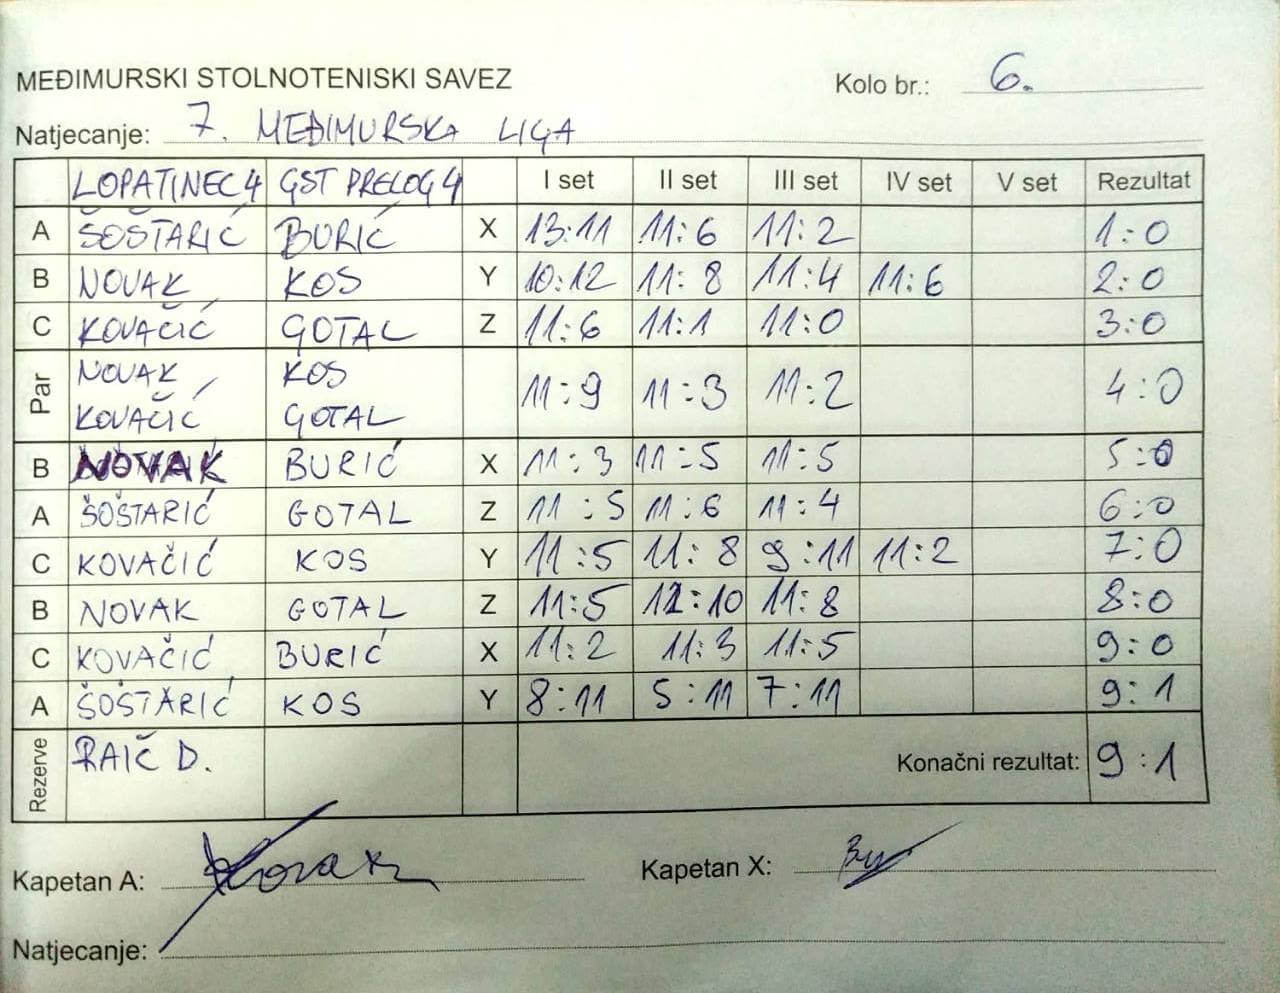 MEĐIMURSKI STOLNOTENISKI SAVEZ Kolo br.: 6.
Natjecanje: 7. MEĐIMURSKA LIGA
LOPATINEC 4 GST PRELOG 4 I set II set III set IV set V set Rezultat
A ŠOŠTARIĆ BURIĆ X 13:11 11:6 11:2 1:0
B NOVAK KOS Y 10:12 11:8 11:4 11:6 2:0
C KOVAČIĆ GOTAL Z 11:6 11:1 11:0 3:0
Par NOVAK KOS 11:9 11:3 11:2 4:0
KOVAČIĆ GOTAL
B NOVAK BURIĆ X 11:3 11:5 11:5 5:0
A ŠOŠTARIĆ GOTAL Z 11:5 11:6 11:4 6:0
C KOVAČIĆ KOS Y 11:5 11:8 9:11 11:2 7:0
B NOVAK GOTAL Z 11:5 12:10 11:8 8:0
C KOVAČIĆ BURIĆ X 11:2 11:3 11:5 9:0
A ŠOŠTARIĆ KOS Y 8:11 5:11 7:11 9:1
Rezerve RAIČ D. Konačni rezultat: 9:1
Kapetan A: Novak Kapetan X:
Natjecanje: